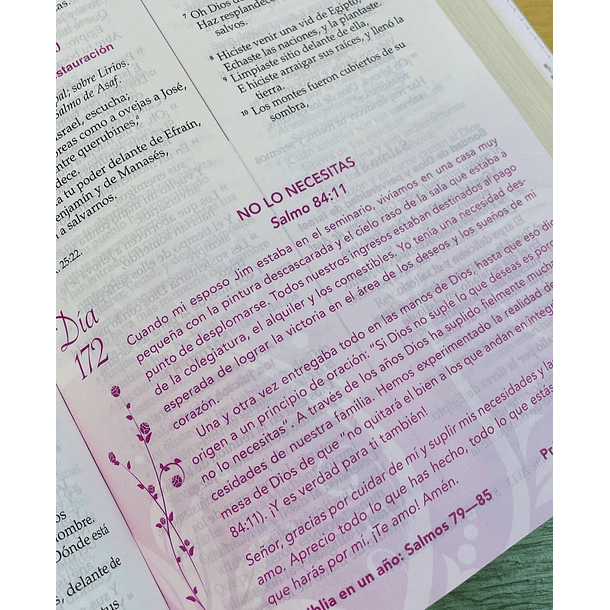 ⁷ Oh Dios de
Haz resplandecer
salvos.
⁸ Hiciste venir una vid de Egipto;
Echaste las naciones, y la plantaste.
⁹ Limpiaste sitio delante de ella,
E hiciste arraigar sus raíces, y llenó la
tierra.
¹⁰ Los montes fueron cubiertos de su
sombra,
estauración
pal; sobre Lirios.
almo de Asaf.
srael, escucha;
oreas como a ovejas a José,
ntre querubines,
dece.
a tu poder delante de Efraín,
enjamín y de Manasés,
a salvarnos.
25:22.
Día
172
NO LO NECESITAS
Salmo 84:11
Cuando mi esposo Jim estaba en el seminario, vivíamos en una casa muy
pequeña con la pintura descascarada y el cielo raso de la sala que estaba a
punto de desplomarse. Todos nuestros ingresos estaban destinados al pago
de la colegiatura, el alquiler y los comestibles. Yo tenía una necesidad des-
esperada de lograr la victoria en el área de los deseos y los sueños de mi
corazón.
Una y otra vez entregaba todo en las manos de Dios, hasta que eso dio
origen a un principio de oración: “Si Dios no suple lo que deseas es porq
no lo necesitas”. A través de los años Dios ha suplido fielmente mucha
cesidades de nuestra familia. Hemos experimentado la realidad de
mesa de Dios de que “no quitará el bien a los que andan en integ
84:11). ¡Y es verdad para ti también!
Señor, gracias por cuidar de mí y suplir mis necesidades y la
amo. Aprecio todo lo que has hecho, todo lo que estás
que harás por mí. ¡Te amo! Amén.
Pr
iblia en un año: Salmos 79—85
os
ombre.
Dónde está
, delante de
tus